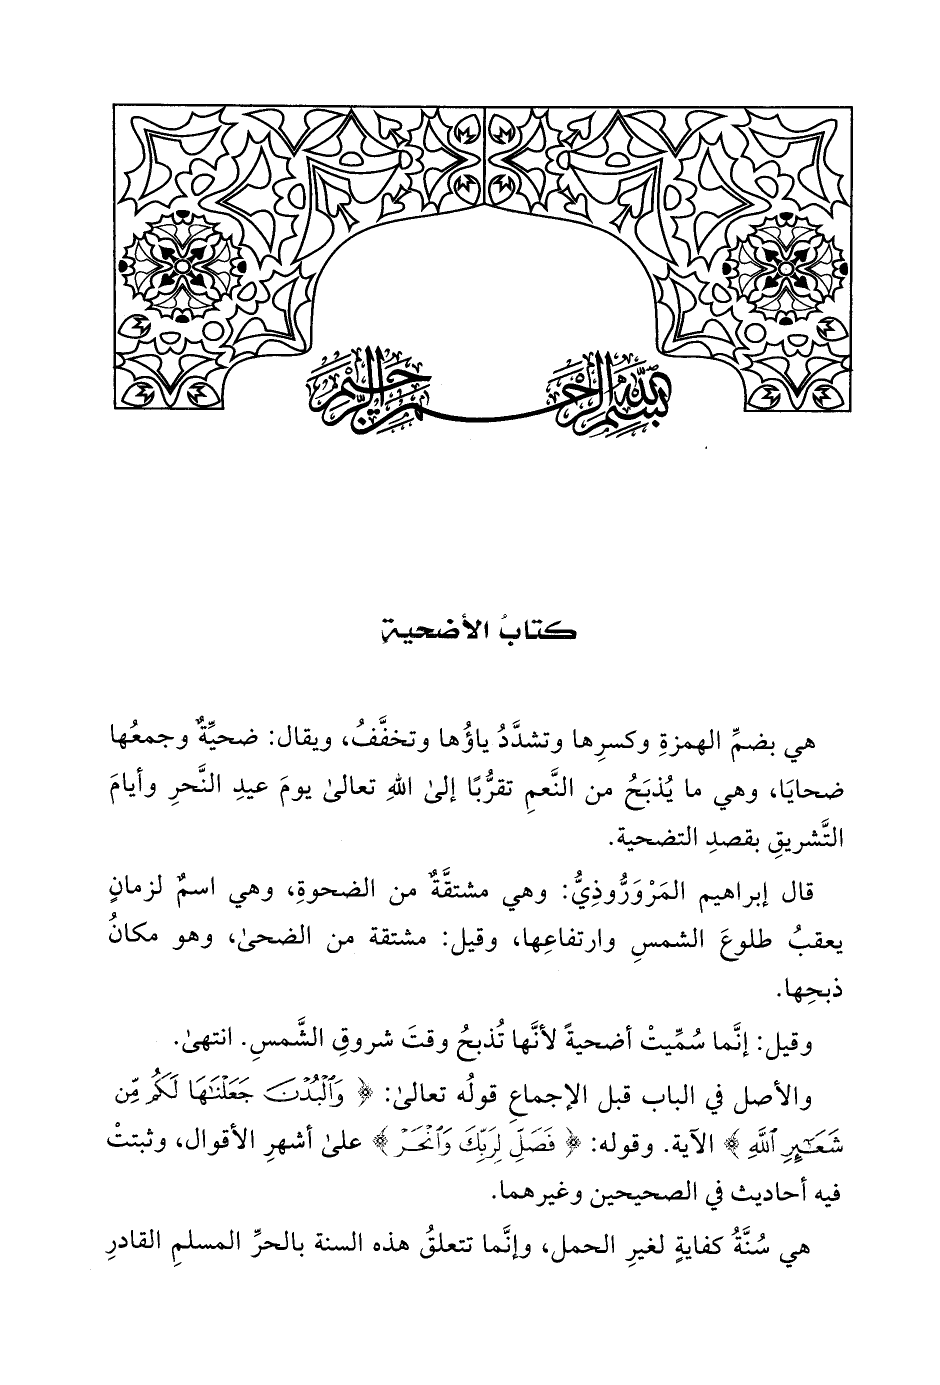 بسم الله الرحمن الرحيم
كتابُ الأضحية
هي بضمِّ الهمزةِ وكسرِها وتشدَّدُ ياؤُها وتخفَّفُ، ويقال: ضحيِّةٌ وجمعُها
ضحايَا، وهي ما يُذْبَحُ من النَّعمِ تقرُّبًا إلىٰ اللهِ تعالىٰ يومَ عيدِ النَّحرِ وأيامَ
التَّشريقِ بقصدِ التضحية.
قال إبراهيم المَرْوَرُّوذِيُّ: وهي مشتقَّةٌ من الضحوةِ، وهي اسمٌ لزمانٍ
يعقبُ طلوعَ الشمسِ وارتفاعِها، وقيل: مشتقة من الضحىٰ، وهو مكانُ
ذبحِها.
وقيل: إنَّما سُمِّيتْ أضحيةً لأنَّها تُذبحُ وقتَ شروقِ الشَّمسِ. انتهىٰ.
والأصل في الباب قبل الإجماعِ قولُه تعالىٰ: ﴿ وَٱلْبُدْنَ جَعَلْنَٰهَا لَكُم مِّن
شَعَٰٓئِرِ ٱللَّهِ ﴾ الآية. وقوله: ﴿ فَصَلِّ لِرَبِّكَ وَٱنْحَرْ ﴾ علىٰ أشهرِ الأقوال، وثبتتْ
فيه أحاديث في الصحيحين وغيرهما.
هي سُنَّةُ كفايةٍ لغيرِ الحمل، وإنَّما تتعلقُ هذه السنة بالحرِّ المسلمِ القادرِ